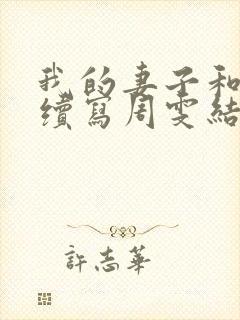 我的妻子和
續寫周雯結
許志華